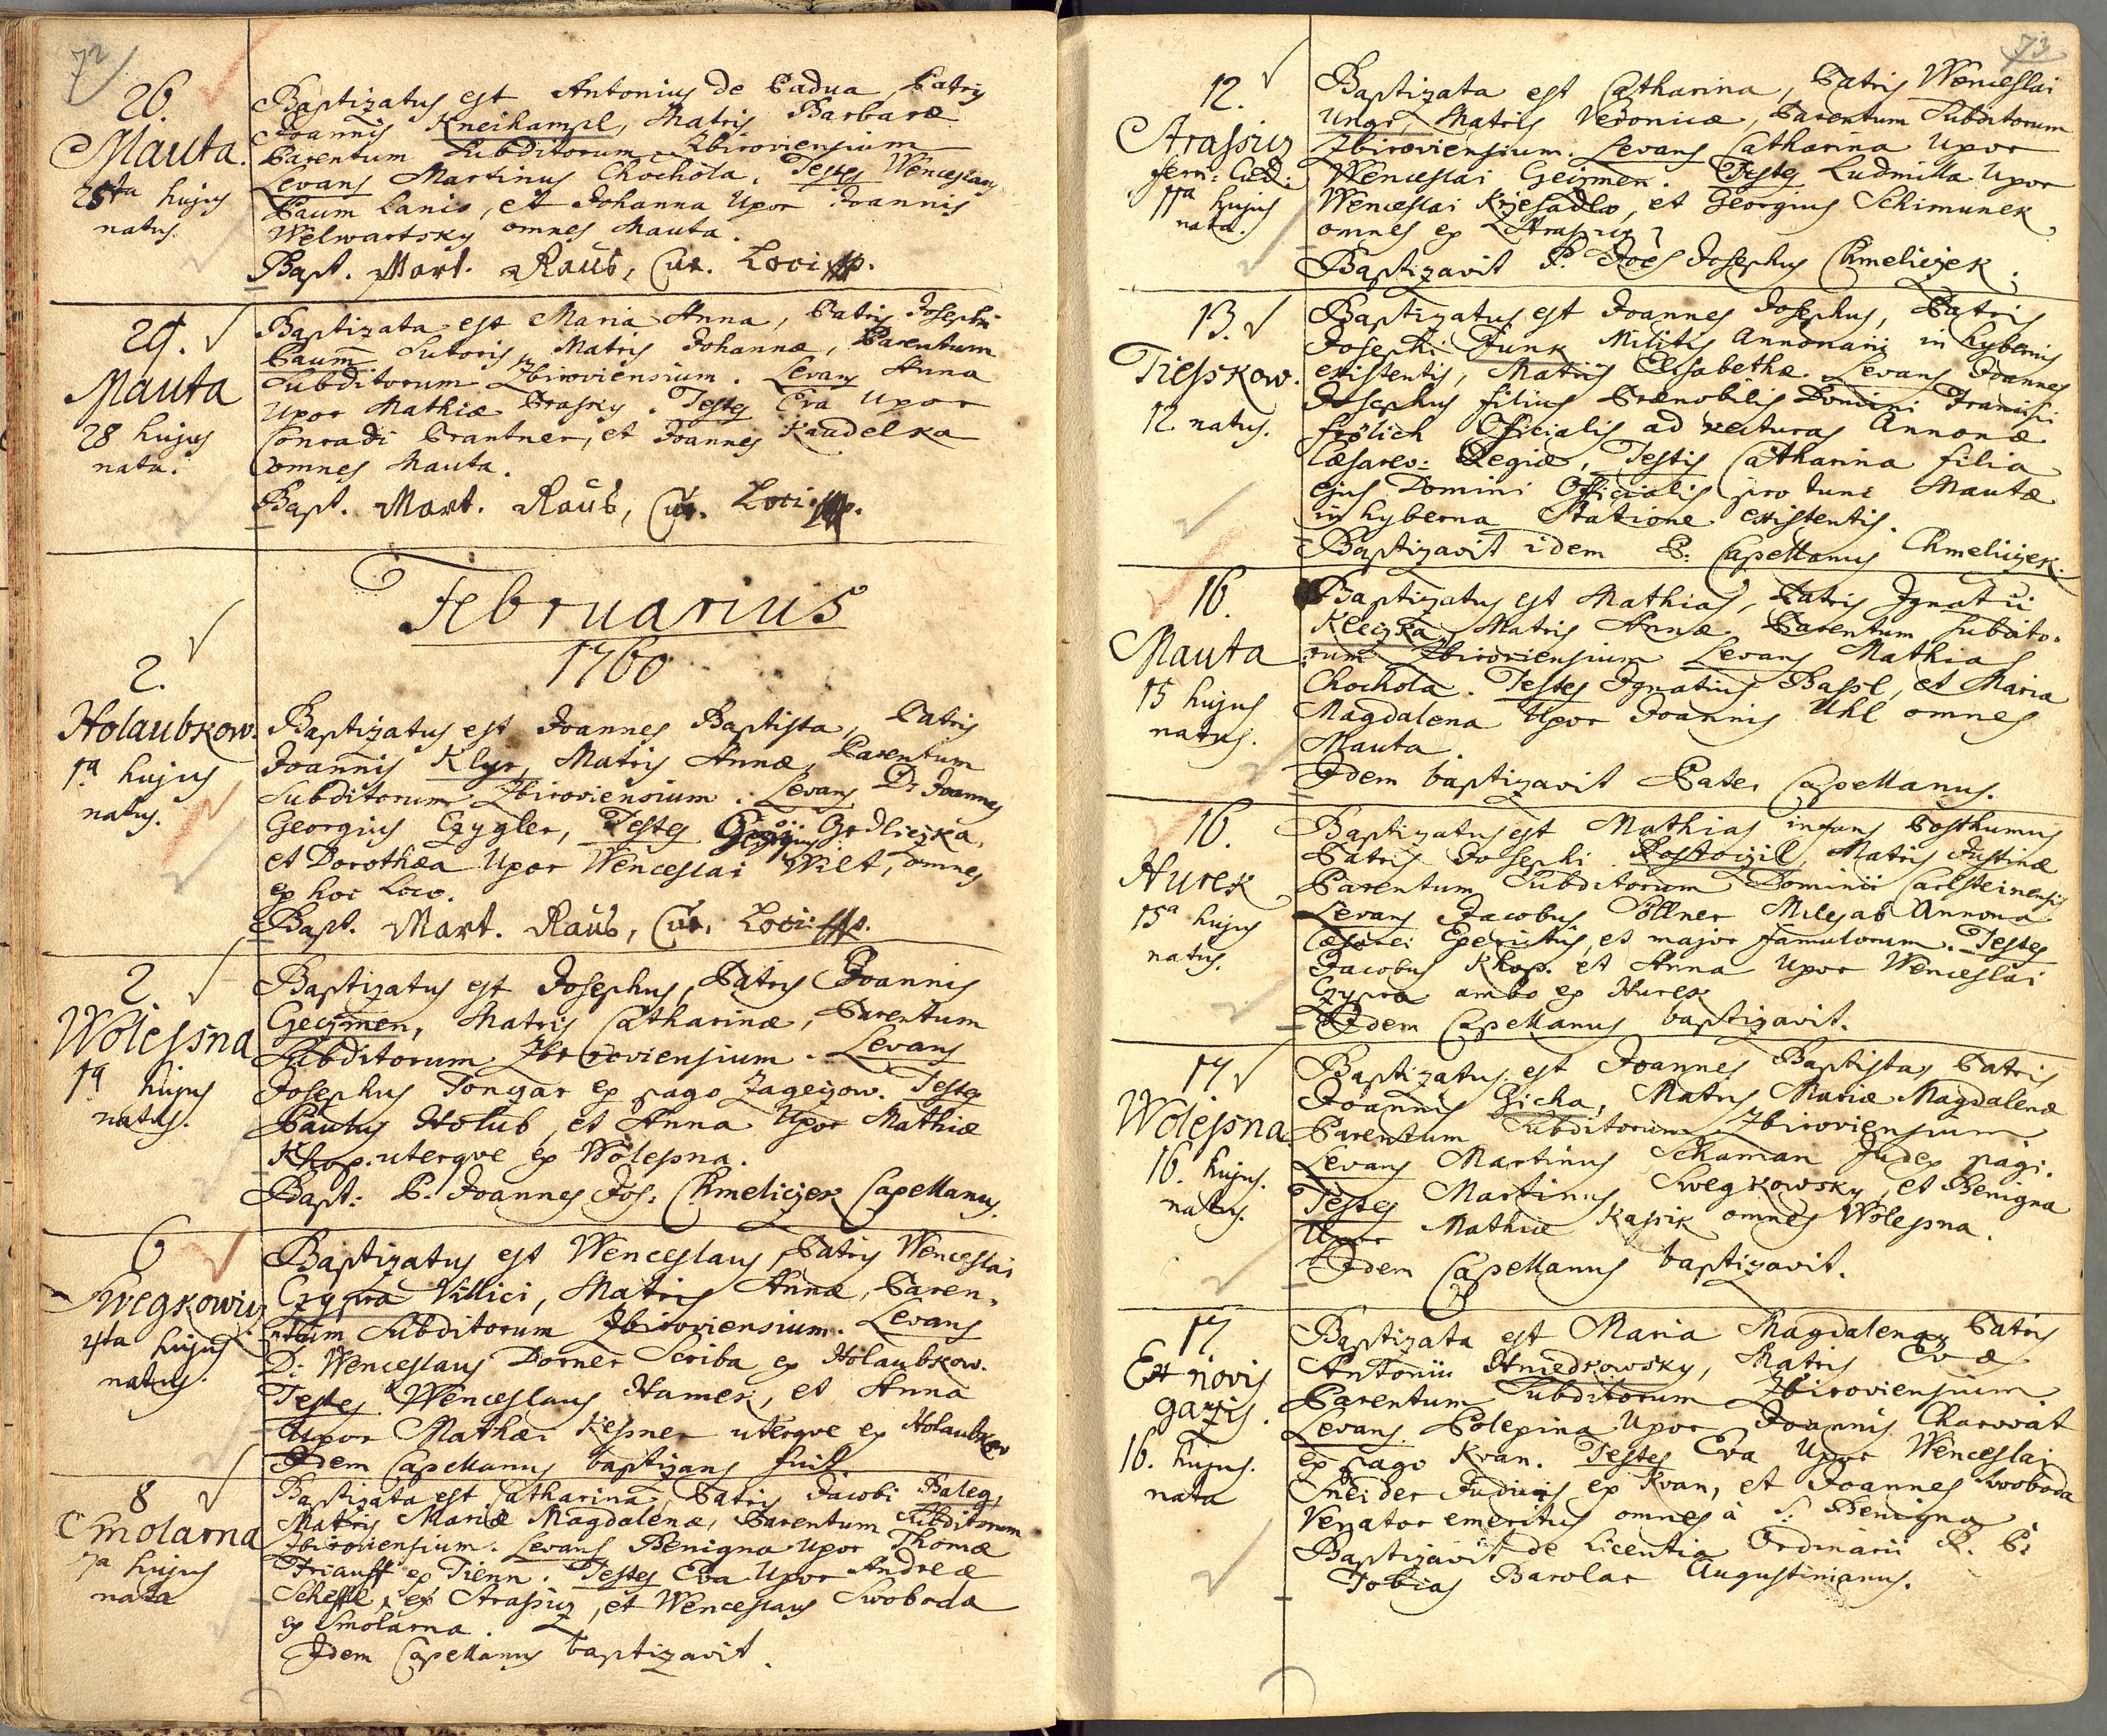 72
26.
Mauta.
25ta hujus
natus.
Baptizatus est Antonius de Padua, Patris
Joannis Kneihampl, Matris Barbaræ
Parentum Subditorum Zbiroviensium
Levans Martinus Chochola. Testes Wenceslaus
Paum Lanio, et Johanna Uxor Joannis
Welwartsky omnes Mauta.
Bapt. Mart. Raub, Cur. Loci
29.
Mauta
28 hujus
nata.
Baptizata est Maria Anna, Patris Josephi
Paum Sutoris, Matris Johannæ, Parentum
Subditorum Zbiroviensium. Levans Anna
Uxor Mathiæ Prasky. Testes Eva Uxor
Conradi Prantner, et Joannes Kaudelka
omnes Mauta.
Bapt. Mart. Raub, Cur. Loci
Februarius
1760
2.
Holaubkow.
1a hujus
natus.
Baptizatus est Joannes Baptista, Patris
Joannis Klyr, Matris Annæ, Parentum
Subditorum Zbiroviensium. Levans D: Joannes
Georgius Czygler, Testes Grdliczka,
et Dorothæa Uxor Wenceslai Wilt, omnes
ex hoc Loco.
Bapt. Mart. Raub, Cur. Loci
2
Wolessna
1a hujus
natus.
Baptizatus est Josephus, Patris Joannis
Geczmen, Matris Catharinæ, Parentum
Subditorum Zbiroviensium. Levans
Josephus Tongar ex pago Zageczow. Testes
Paulus Holub, et Anna Uxor Mathiæ
Khop. uterque ex Wolessna.
Bapt: P. Joannes Jos: Chmeliczek Capellanus.
6
Swegkowicz
4ta hujus
natus.
Baptizatus est Wenceslaus, Patris Wenceslai
Czypra Villici, Matris Annæ, Paren-
tum Subditorum Zbiroviensium. Levans
D: Wenceslaus Dorner Scriba ex Holaubkow.
Testes Wenceslaus Hamek, et Anna
Uxor Mathæi Kessner uterque ex Holaubkow
Idem Capellanus baptizans fuit
8
Smolarna
7a hujus
nata
Baptizata est Catharina, Patris Jacobi Baleg,
Matris Mariæ Magdalenæ, Parentum Subditorum
Zbiroviensium. Levans Benigna Uxor Thomæ
Triauff ex Tienn. Testes Eva Uxor Andreæ
Scheffl, ex Strassicz, et Wenceslaus Swoboda
ex Smolarna.
Idem Capellanus baptizavit.
73
12.
Strassicz
11a hujus
nata.
Baptizata est Catharina, Patris Wenceslai
Ungr, Matris Veronicæ, Parentum Subditorum
Zbiroviensium. Levans Catharina Uxor
Wenceslai Geczmen. Testes Ludmilla Uxor
Wenceslai Krzesadlo, et Georgius Schimunek
omnes ex Strassicz
Baptizavit P. Joes Josephus Chmeliczek.
13.
Tiesskow.
12. natus.
Baptizatus est Joannes Josephus, Patris
Josephi Funk Militis Annonarii in hybernis
existentis, Matris Elisabethæ. Levans Joannes
Josephus filius Prænobilis Domini Francisci
Frölich Officialis ad vecturas Annonæ
Cæsareo: Regiæ, Testis Catharina filia
ejus Domini Officialis pro tunc Mautæ
in hyberna Statione existentis.
Baptizavit idem P: Capellanus Chmeliczek.
16.
Mauta
15 hujus
natus.
Baptizatus est Mathias, Patris Ignatii
Kleczka, Matris Annæ, Parentum Subdito-
rum Zbiroviensium Levans Mathias
Chochola. Testes Ignatius Bassl, et Maria
Magdalena Uxor Joannis Uhl omnes
Mauta.
Idem baptizavit Pater Capellanus.
16.
Hurek
15a hujus
natus.
Baptizatus est Mathias infans Posthumus
Patris Josephi Rostoczil, Matris Justinæ
Parentum Subditorum Dominii Carlsteinensis
Levans Jacobus Pöllner Miles ab Annona
Cæsarei Exercitus, et major famulorum. Testes
Jacobus Khop. et Anna Uxor Wenceslai
Czypra ambo ex Hurek
Idem Capellanus baptizavit.
17.
Wolessna.
16. hujus.
natus.
Baptizatus est Joannes Baptista, Patris
Joannis Cicha, Matris Mariæ Magdalenæ
Parentum Subditorum Zbiroviensium.
Levans Martinus Schaman Judex pagi.
Testes Martinus Swegkowsky, et Benigna
Uxor Mathiæ Kassik omnes Wolessna.
Idem Capellanus baptizavit.
17
Ex novis
gazis.
16. hujus.
nata
Baptizata est Maria Magdalena, Patris
Antonii Hniedkowsky, Matris Evæ
Parentum Subditorum Zbiroviensium
Levans Polexina Uxor Joannis Charowat
ex pago Kvan. Testes Eva Uxor Wenceslai
Sneider Judicis ex Kvan, et Joannes Swoboda
Venator emeritus omnes à S: Benigna
Baptizavit de Licentia Ordinarii R. P.
Tobias Barolar Augustinianus.